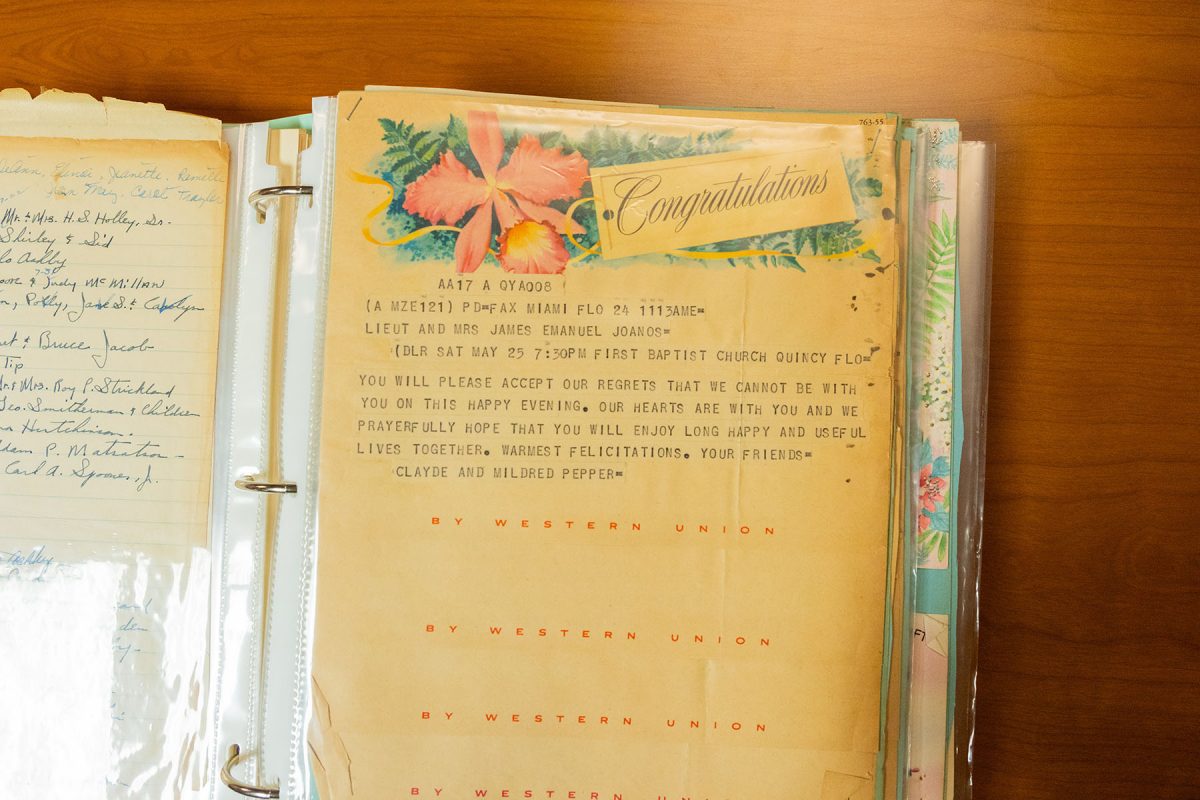 Jeanette,
Mr. & Mrs. H. S. Holley, Sr.
Shirley & Sid
Ashby
& Judy McMillan
Polly, Jane S. & Carolyn
& Bruce Jacob
Tip
Mrs. Roy P. Strickland
Geo. Smitherman & Children
Hutchinson.
P.
Carl A. Spooner, Jr.
763-55
Congratulations
AA17 A QYA008
(A MZE121) PD=FAX MIAMI FLO 24 1113AME=
LIEUT AND MRS JAMES EMANUEL JOANOS=
(DLR SAT MAY 25 7:30PM FIRST BAPTIST CHURCH QUINCY FLO=
YOU WILL PLEASE ACCEPT OUR REGRETS THAT WE CANNOT BE WITH
YOU ON THIS HAPPY EVENING. OUR HEARTS ARE WITH YOU AND WE
PRAYERFULLY HOPE THAT YOU WILL ENJOY LONG HAPPY AND USEFUL
LIVES TOGETHER. WARMEST FELICITATIONS. YOUR FRIENDS=
CLAYDE AND MILDRED PEPPER=
BY WESTERN UNION
BY WESTERN UNION
BY WESTERN UNION
BY WESTERN UNION